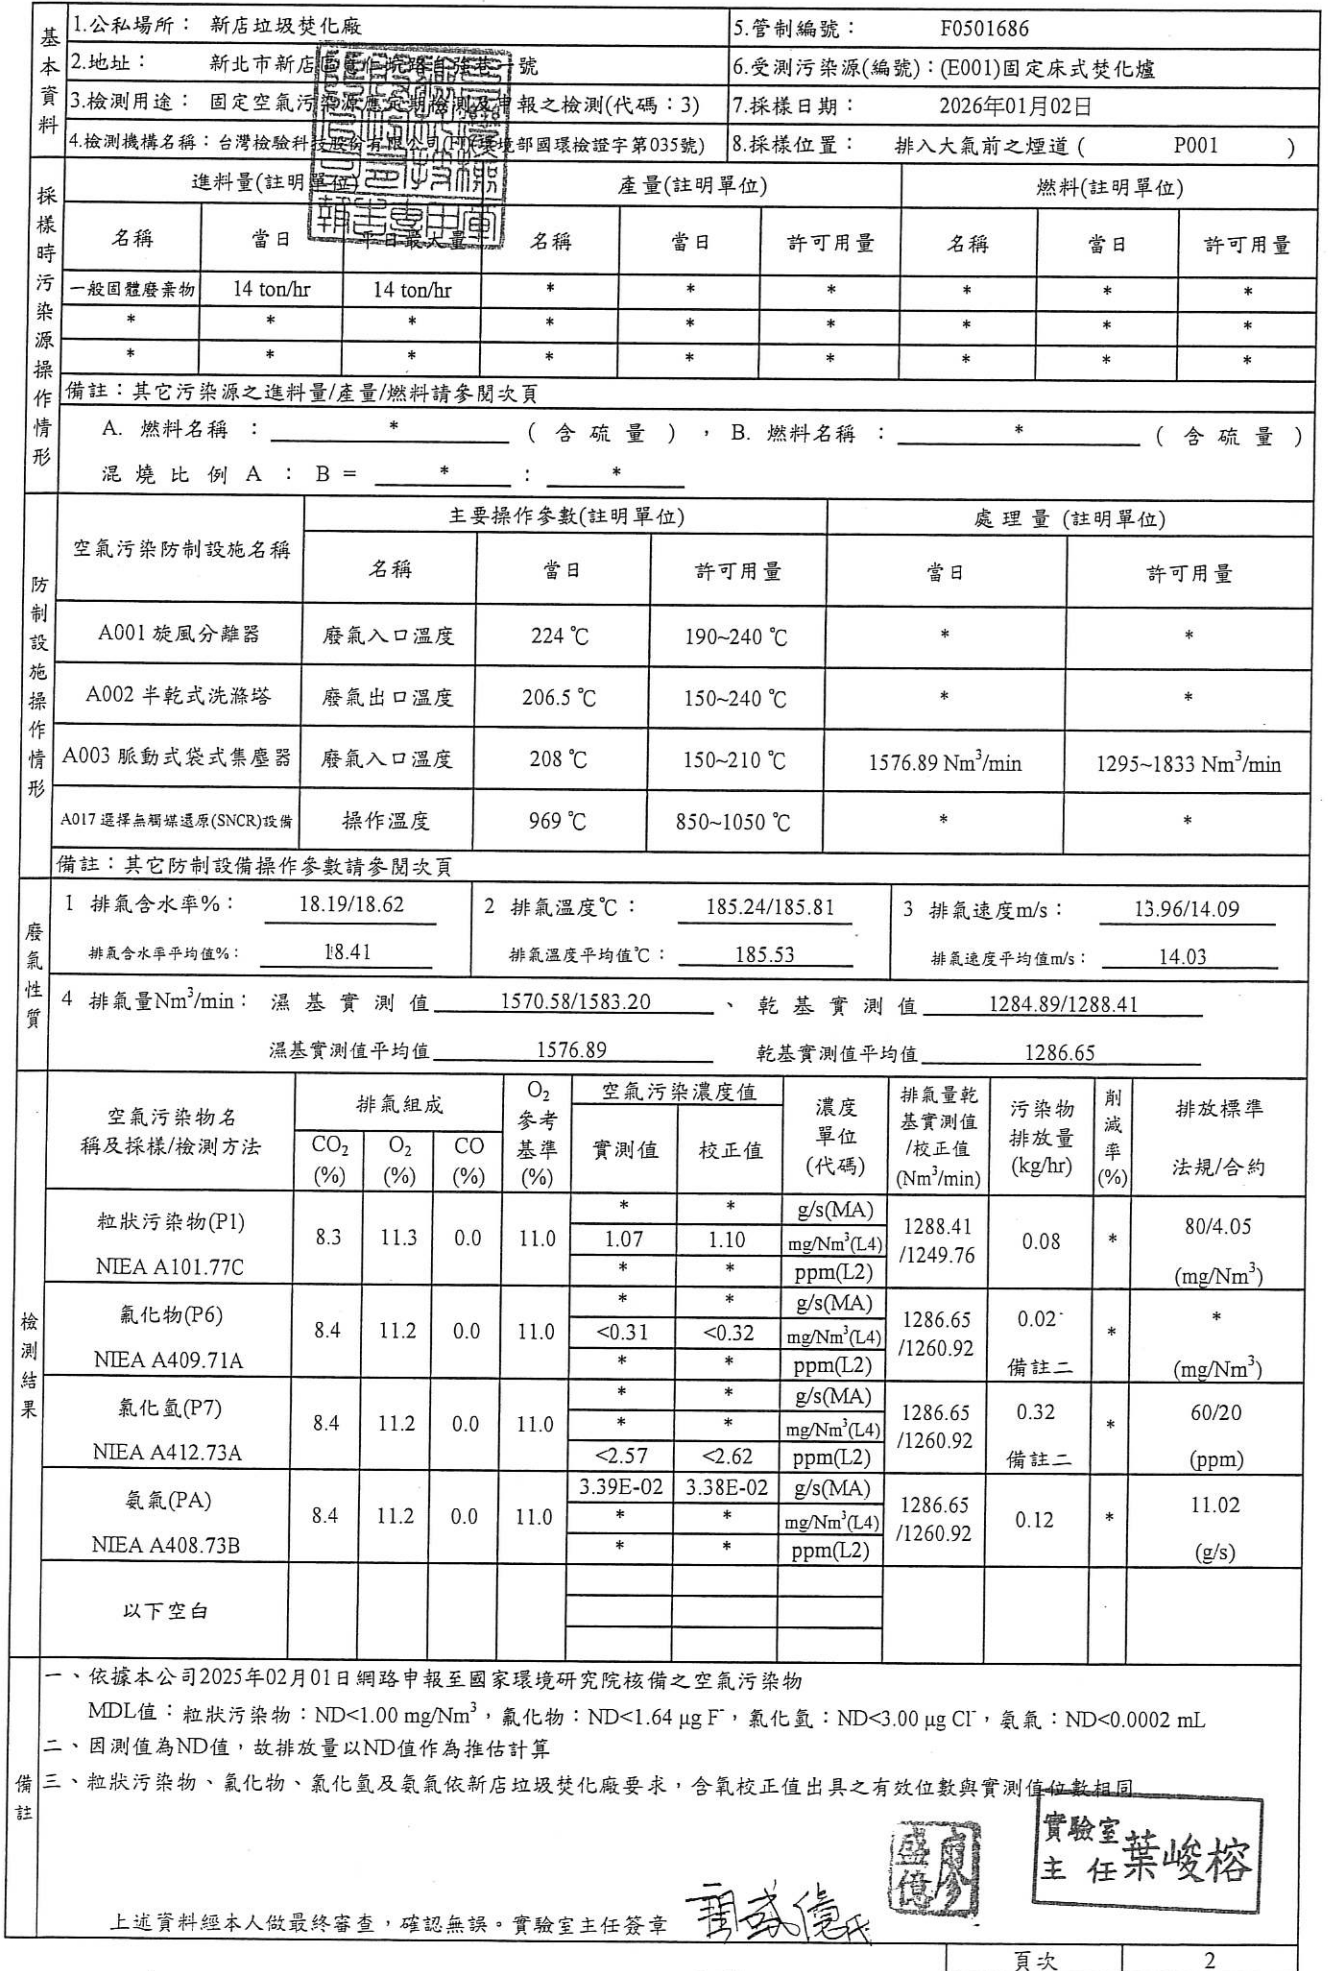 基本資料
1.公私場所： 新店垃圾焚化廠
5.管制編號： F0501686
2.地址： 新北市新店區 路 一號
6.受測污染源(編號)：(E001)固定床式焚化爐
3.檢測用途： 固定空氣污染源應定期檢測及申報之檢測(代碼：3)
7.採樣日期： 2026年01月02日
4.檢測機構名稱：台灣檢驗科技股份有限公司 環境部國環檢證字第035號)
8.採樣位置： 排入大氣前之煙道 ( P001 )
採樣時污染源操作情形
進料量(註明單位) 產量(註明單位) 燃料(註明單位)
名稱 當日 平日最大量 名稱 當日 許可用量 名稱 當日 許可用量
一般固體廢棄物 14 ton/hr 14 ton/hr * * * * * *
* * * * * * * * *
* * * * * * * * *
備註：其它污染源之進料量/產量/燃料請參閱次頁
A. 燃料名稱 ： * ( 含硫量 ) ，B. 燃料名稱 ： * ( 含硫量 )
混燒比例 A ： B = * ： *
防制設施操作情形
空氣污染防制設施名稱 主要操作參數(註明單位) 處理量 (註明單位)
名稱 當日 許可用量 當日 許可用量
A001 旋風分離器 廢氣入口溫度 224 ℃ 190~240 ℃ * *
A002 半乾式洗滌塔 廢氣出口溫度 206.5 ℃ 150~240 ℃ * *
A003 脈動式袋式集塵器 廢氣入口溫度 208 ℃ 150~210 ℃ 1576.89 Nm³/min 1295~1833 Nm³/min
A017 選擇無觸媒還原(SNCR)設備 操作溫度 969 ℃ 850~1050 ℃ * *
備註：其它防制設備操作參數請參閱次頁
廢氣性質
1 排氣含水率%： 18.19/18.62 2 排氣溫度℃： 185.24/185.81 3 排氣速度m/s： 13.96/14.09
排氣含水率平均值%： 18.41 排氣溫度平均值℃： 185.53 排氣速度平均值m/s： 14.03
4 排氣量Nm³/min： 濕基實測值 1570.58/1583.20 、 乾基實測值 1284.89/1288.41
濕基實測值平均值 1576.89 乾基實測值平均值 1286.65
檢測結果
空氣污染物名稱及採樣/檢測方法 排氣組成 O₂參考基準(%) 空氣污染濃度值 濃度單位(代碼) 排氣量乾基實測值/校正值(Nm³/min) 污染物排放量(kg/hr) 削減率(%) 排放標準 法規/合約
CO₂(%) O₂(%) CO(%) 實測值 校正值
粒狀污染物(P1) NIEA A101.77C 8.3 11.3 0.0 11.0 1288.41/1249.76 0.08 * 80/4.05 (mg/Nm³)
* * g/s(MA)
1.07 1.10 mg/Nm³(L4)
* * ppm(L2)
氟化物(P6) NIEA A409.71A 8.4 11.2 0.0 11.0 1286.65/1260.92 0.02 備註二 * * (mg/Nm³)
* * g/s(MA)
<0.31 <0.32 mg/Nm³(L4)
* * ppm(L2)
氯化氫(P7) NIEA A412.73A 8.4 11.2 0.0 11.0 1286.65/1260.92 0.32 備註二 * 60/20 (ppm)
* * g/s(MA)
* * mg/Nm³(L4)
<2.57 <2.62 ppm(L2)
氨氣(PA) NIEA A408.73B 8.4 11.2 0.0 11.0 1286.65/1260.92 0.12 * 11.02 (g/s)
3.39E-02 3.38E-02 g/s(MA)
* * mg/Nm³(L4)
* * ppm(L2)
以下空白
備註
一、依據本公司2025年02月01日網路申報至國家環境研究院核備之空氣污染物
MDL值：粒狀污染物：ND<1.00 mg/Nm³，氟化物：ND<1.64 μg F⁻，氯化氫：ND<3.00 μg Cl⁻，氨氣：ND<0.0002 mL
二、因測值為ND值，故排放量以ND值作為推估計算
三、粒狀污染物、氟化物、氯化氫及氨氣依新店垃圾焚化廠要求，含氧校正值出具之有效位數與實測值位數相同
實驗室主任 葉峻榕
上述資料經本人做最終審查，確認無誤。實驗室主任簽章
頁次 2